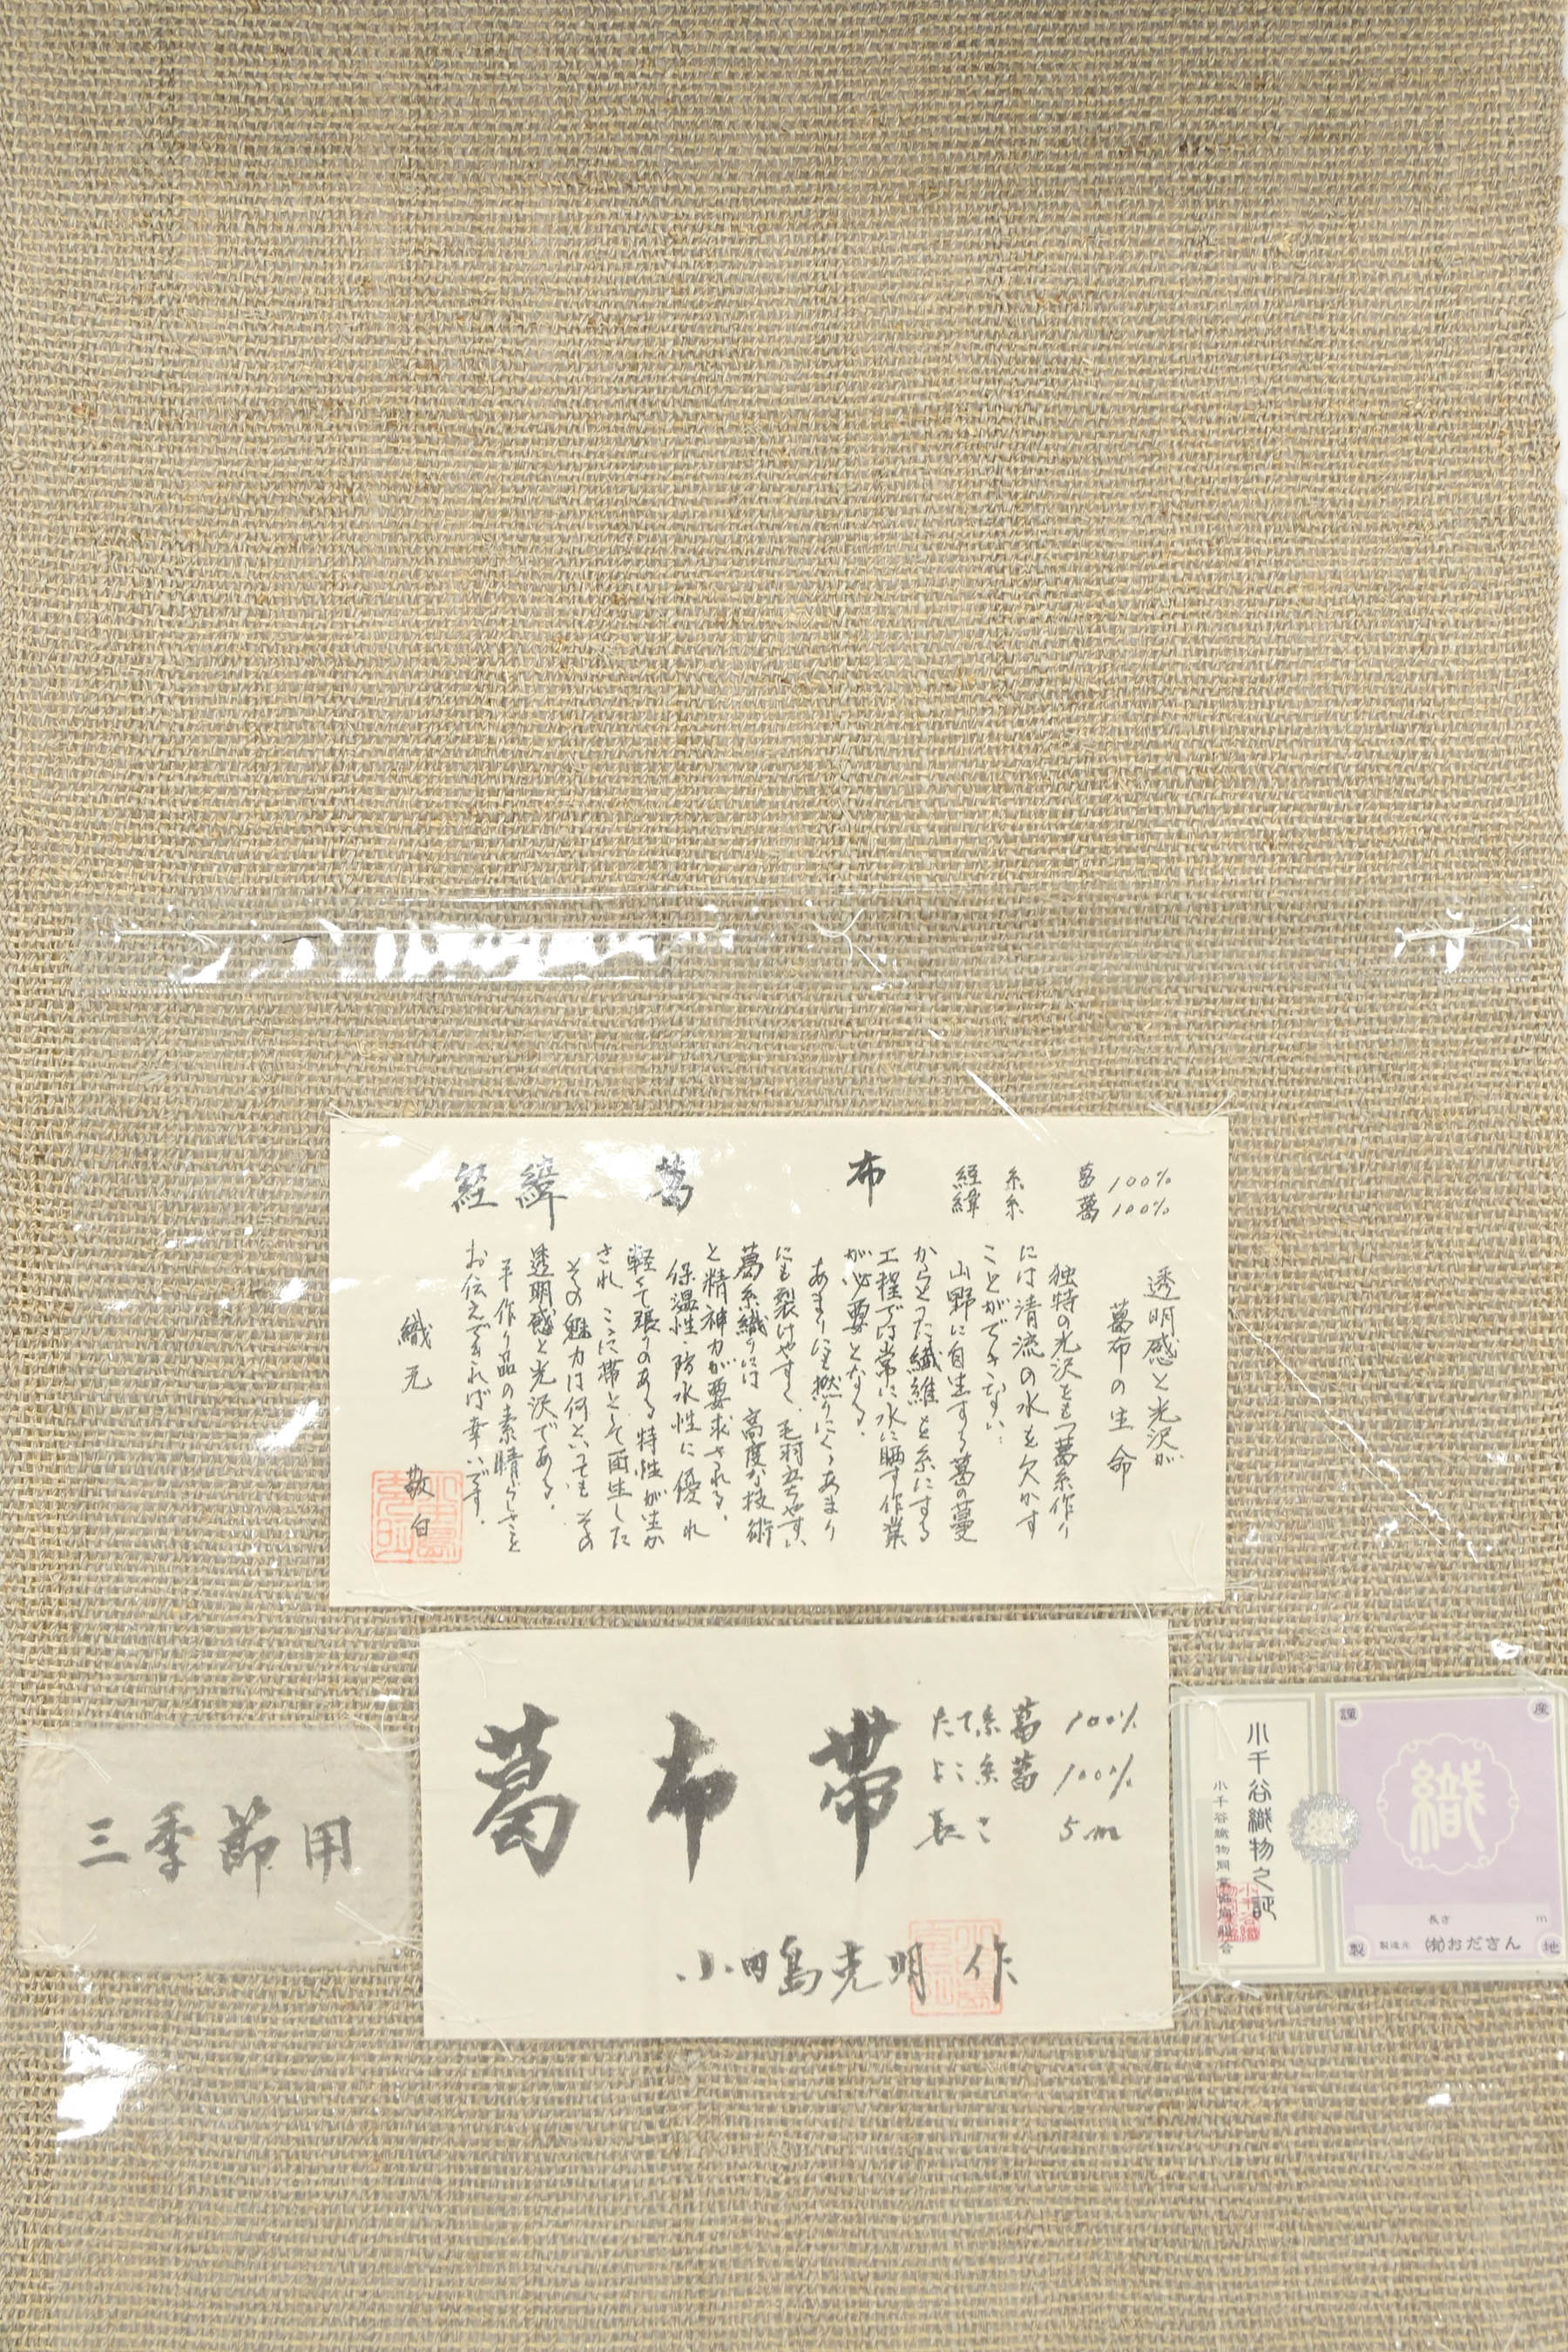 経緯 葛 布
経 糸 葛 100%
緯 糸 葛 100%
透明感と光沢が
葛布の生命
独特の光沢をもつ葛糸作り
には清流の水を欠かす
ことができない。
山野に自生する葛の蔓
からとった繊維を糸にする
工程では常に水に晒す作業
が必要となる。
あまりにも撚りにくくあまり
にも裂けやすく、毛羽立ちやすい
葛糸織りには 高度な技術
と精神力が要求される。
保温性、防水性に優れ
軽くて張りのある特性が生か
され ここに帯として再生した
その魅力は何といっても その
透明感と光沢である。
手作り品の素晴らしさを
お伝えできれば幸いです。
織元
敬白
三季節用
葛布帯
たて糸 葛 100%
よこ糸 葛 100%
長さ 5m
小田島克明 作
小千谷織物之証
小千谷織物同業協同組合
謹
産
織
長さ m
製
製造元 (有)おださん
地